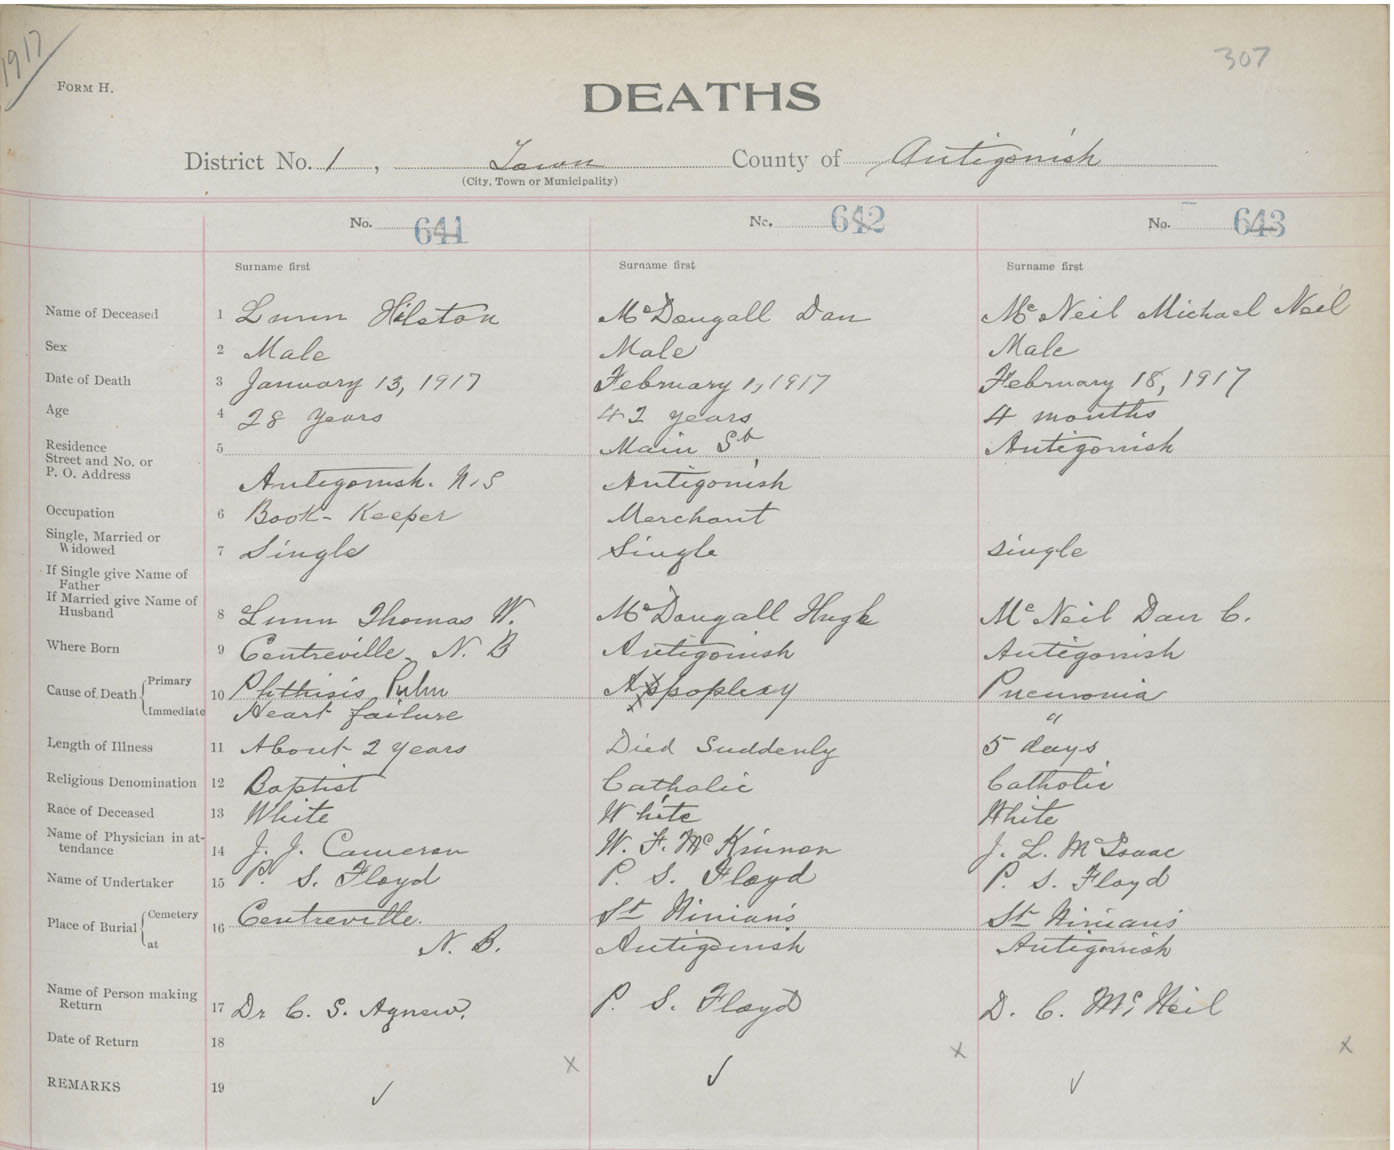 1917
307
FORM H.
DEATHS
District No. 1, Town County of Antigonish
(City, Town or Municipality)
No. 641 No. 642 No. 643
Surname first Surname first Surname first
Name of Deceased 1 Lunn Hilston McDougall Dan McNeil Michael Neil
Sex 2 Male Male Male
Date of Death 3 January 13, 1917 February 1, 1917 February 18, 1917
Age 4 28 years 42 years 4 months
Residence 5 Main St, Antigonish
Street and No. or
P. O. Address Antigonish. N.S Antigonish
Occupation 6 Book-Keeper Merchant
Single, Married or
Widowed 7 Single Single single
If Single give Name of
Father
If Married give Name of
Husband 8 Lunn Thomas W. McDougall Hugh McNeil Dan C.
Where Born 9 Centreville N.B Antigonish Antigonish
Cause of Death Primary 10 Phthisis Pulm Appoplexy Pneumonia
Immediate Heart failure "
Length of Illness 11 About 2 years Died Suddenly 5 days
Religious Denomination 12 Baptist Catholic Catholic
Race of Deceased 13 White White White
Name of Physician in at-
tendance 14 J. J. Cameron W. F. McKinnon J. L. McIsaac
Name of Undertaker 15 P. S. Floyd P. S. Floyd P. S. Floyd
Place of Burial Cemetery 16 Centreville. St Ninian's St Ninians
at N. B. Antigonish Antigonish
Name of Person making
Return 17 Dr C. S. Agnew. P. S. Floyd D. C. McNeil
Date of Return 18
x x x
REMARKS 19 ✓ ✓ ✓